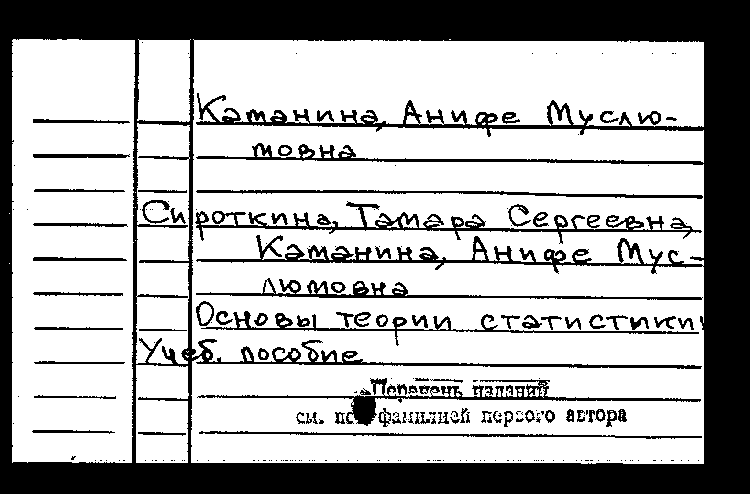 Каманина, Анифе Муслю-
мовна
Сироткина, Тамара Сергеевна,
Каманина, Анифе Мус-
люмовна
Основы теории статистики:
Учеб. пособие
Перечень изданий
см. под фамилией первого автора